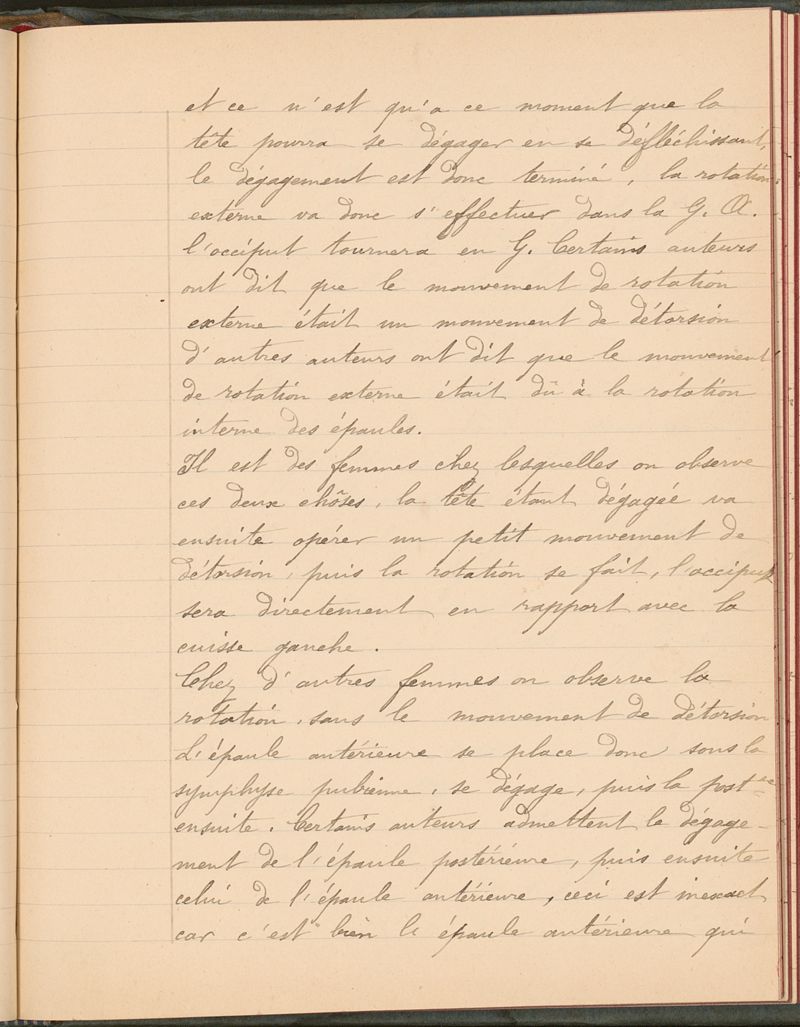 et ce n'est qu'a ce moment que la
tête pourra se dégager en se défléchissant,
le dégagement est donc terminé, la rotation
externe va donc s'effectuer dans la G. A.
l'occiput tournera en G. Certains auteurs
ont dit que le mouvement de rotation
externe était un mouvement de détorsion
d'autres auteurs ont dit que le mouvement
de rotation externe était dû à la rotation
interne des épaules.
Il est des femmes chez lesquelles on observe
ces deux chôses, la tête étant dégagée va
ensuite opérer un petit mouvement de
détorsion, puis la rotation se fait, l'occiput
sera directement en rapport avec la
cuisse gauche.
Chez d'autres femmes on observe la
rotation, sans le mouvement de détorsion
L'épaule antérieure se place donc sous la
symphyse pubienne, se dégage, puis la postre
ensuite. Certains auteurs admettent le dégage-
ment de l'épaule postérieure, puis ensuite
celui de l'épaule antérieure, ceci est inexact
car c'est bien l'épaule antérieure qui